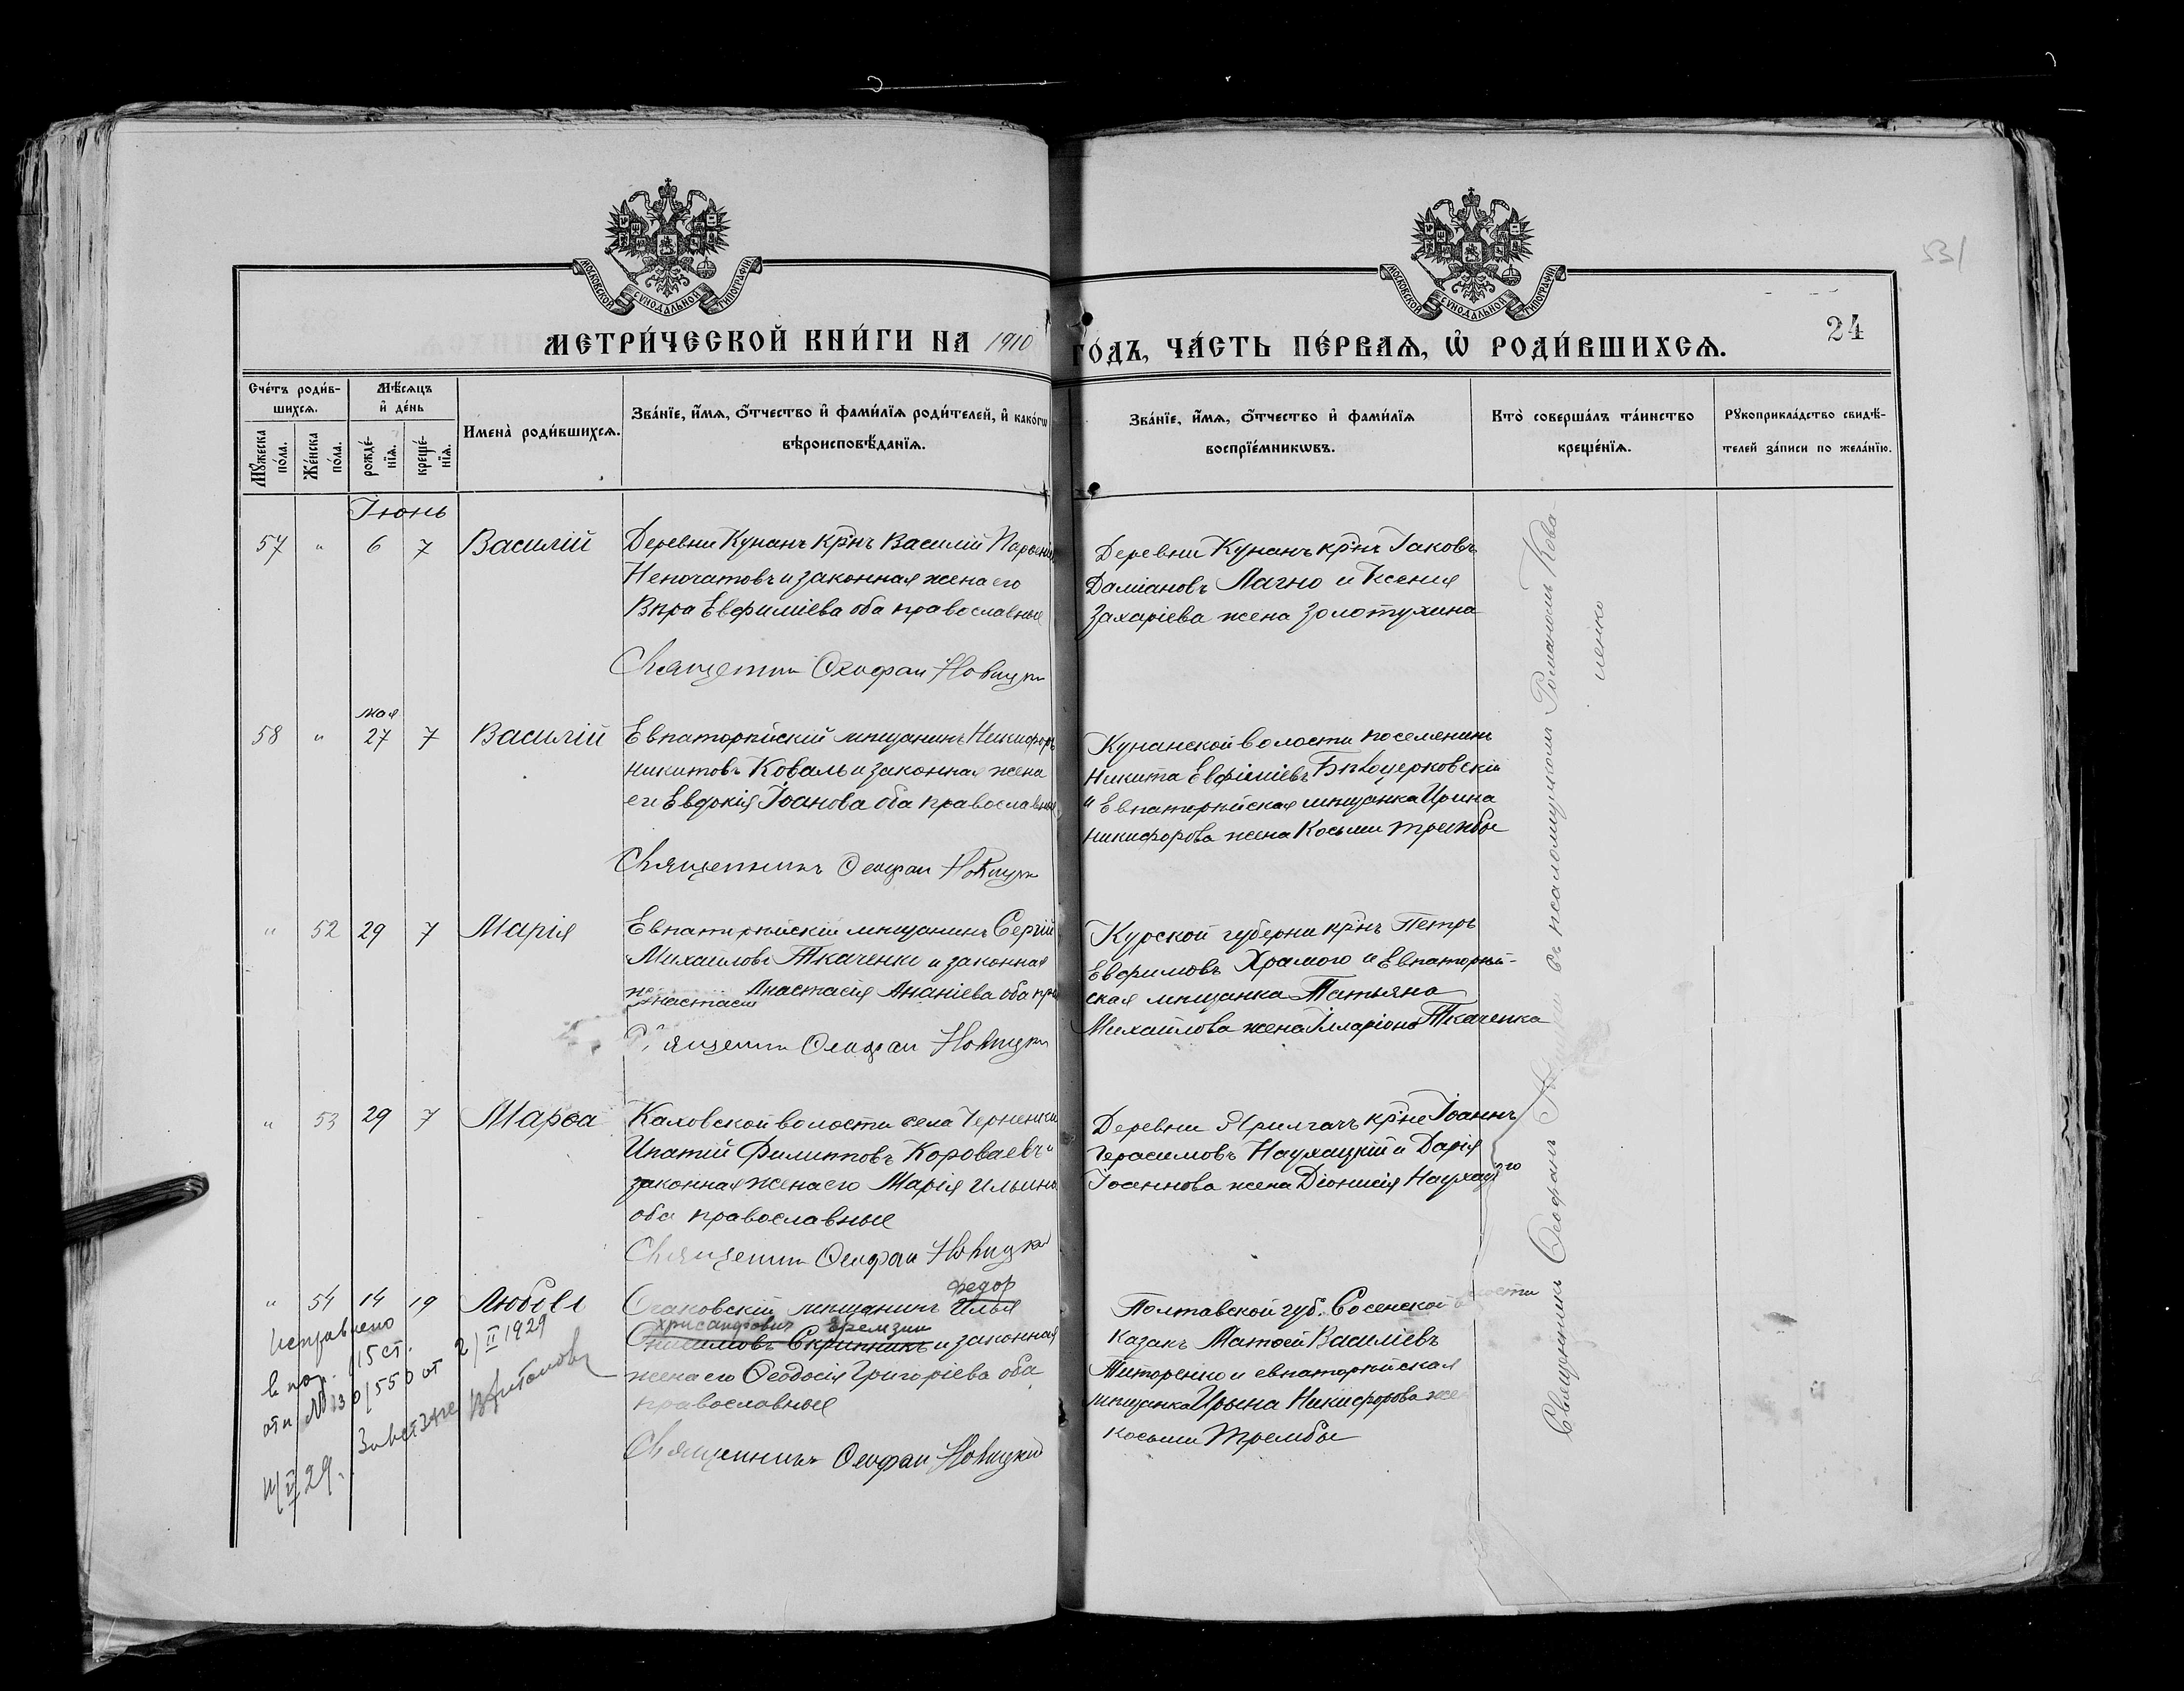 531
24
МОСКОВСКОЙ СѴНОДАЛЬНОЙ ТИПОГРАФІИ
МОСКОВСКОЙ СѴНОДАЛЬНОЙ ТИПОГРАФІИ
МЕТРИ́ЧЕСКОЙ КНИ́ГИ НА 1910 ГО́ДЪ, ЧА́СТЬ ПЕ́РВАѦ, Ѡ҆ РОДИ́ВШИХСѦ.
Сче́тъ роди́в-
шихсѧ.
Мѣ́сѧцъ
и҆ де́нь
Мꙋ́жеска
по́ла.
Же́нска
по́ла.
рожде́-
нїѧ.
креще́-
нїѧ.
Имена̀ роди́вшихсѧ.
Зва́нїе, и҆́мѧ, ѻ҆́тчество и҆ фами́лїѧ роди́телей, и҆ како́гѡ
вѣроисповѣ́данїѧ.
Зва́нїе, и҆́мѧ, ѻ҆́тчество и҆ фами́лїѧ
воспрїе́мникѡвъ.
Кто̀ соверша́лъ та́инство
креще́нїѧ.
Рꙋкоприкла́дство свидѣ́-
телей за́писи по жела́нїю.
Іюнь
57 " 6 7 Василій
Деревни Кунанъ кр-нъ Василій
Непочатовъ и законная жена его
Вѣра Евфиміева оба православные
Священникъ Ѳеофан Новицкій
Деревни Кунанъ кр-нъ Іаковъ
Даміановъ Лагно и Ксенія
Захаріева жена Золотухина
мая
58 " 27 7 Василій
Евпаторійскій мѣщанинъ Никифоръ
Никитовъ Коваль и законная жена
его Евдокія Іоанова оба православные
Священникъ Ѳеофан Новицкій
Кунанской волости поселянинъ
Никита Евфиміевъ Бѣлоцерковскій
и Евпаторійская мѣщанка Ирина
Никифорова жена Косьмы Трембы
" 52 29 7 Марія
Евпаторійскій мѣщанинъ Сергій
Михаиловъ Ткаченко и законная
Анастасія Ананіева оба
Анастасія
Священникъ Ѳеофан Новицкій
Курской губерни кр-нъ Петръ
Евфимовъ Храмого и Евпаторій-
ская мѣщанка Татьяна
Михайлова жена Илларіона Ткаченка
" 53 29 7 Марѳа
волости села
Ипатій Филипповъ Короваевъ и
законная жена его Марія Ильина
оба православные
Священникъ Ѳеофан Новицкій
Деревни Ярилгачъ кр-не Іоаннъ
Герасимовъ Наухацкій и Дарія
Іоаннова жена Діонисія
" 54 14 19 Любовь
Федор
Очаковскій мѣщанинъ Илья
Хрисанфович Еремзин
Онисимовъ Скрипникъ и законная
жена его Ѳеодосія Григоріева оба
православные
Священникъ Ѳеофан Новицкій
Полтавской губ. Сосенской волости
казакъ Матѳей Василіевъ
Титоренко и евпаторійская
мѣщанка Ирына Никифорова жена
Косьмы Трембы
Исправлено
в пор. 115 ст.
отн № 130/550 от 2/II 1929
29.
Священникъ Ѳеофанъ Новицкій съ псаломщикомъ Романомъ Кова-
ленко